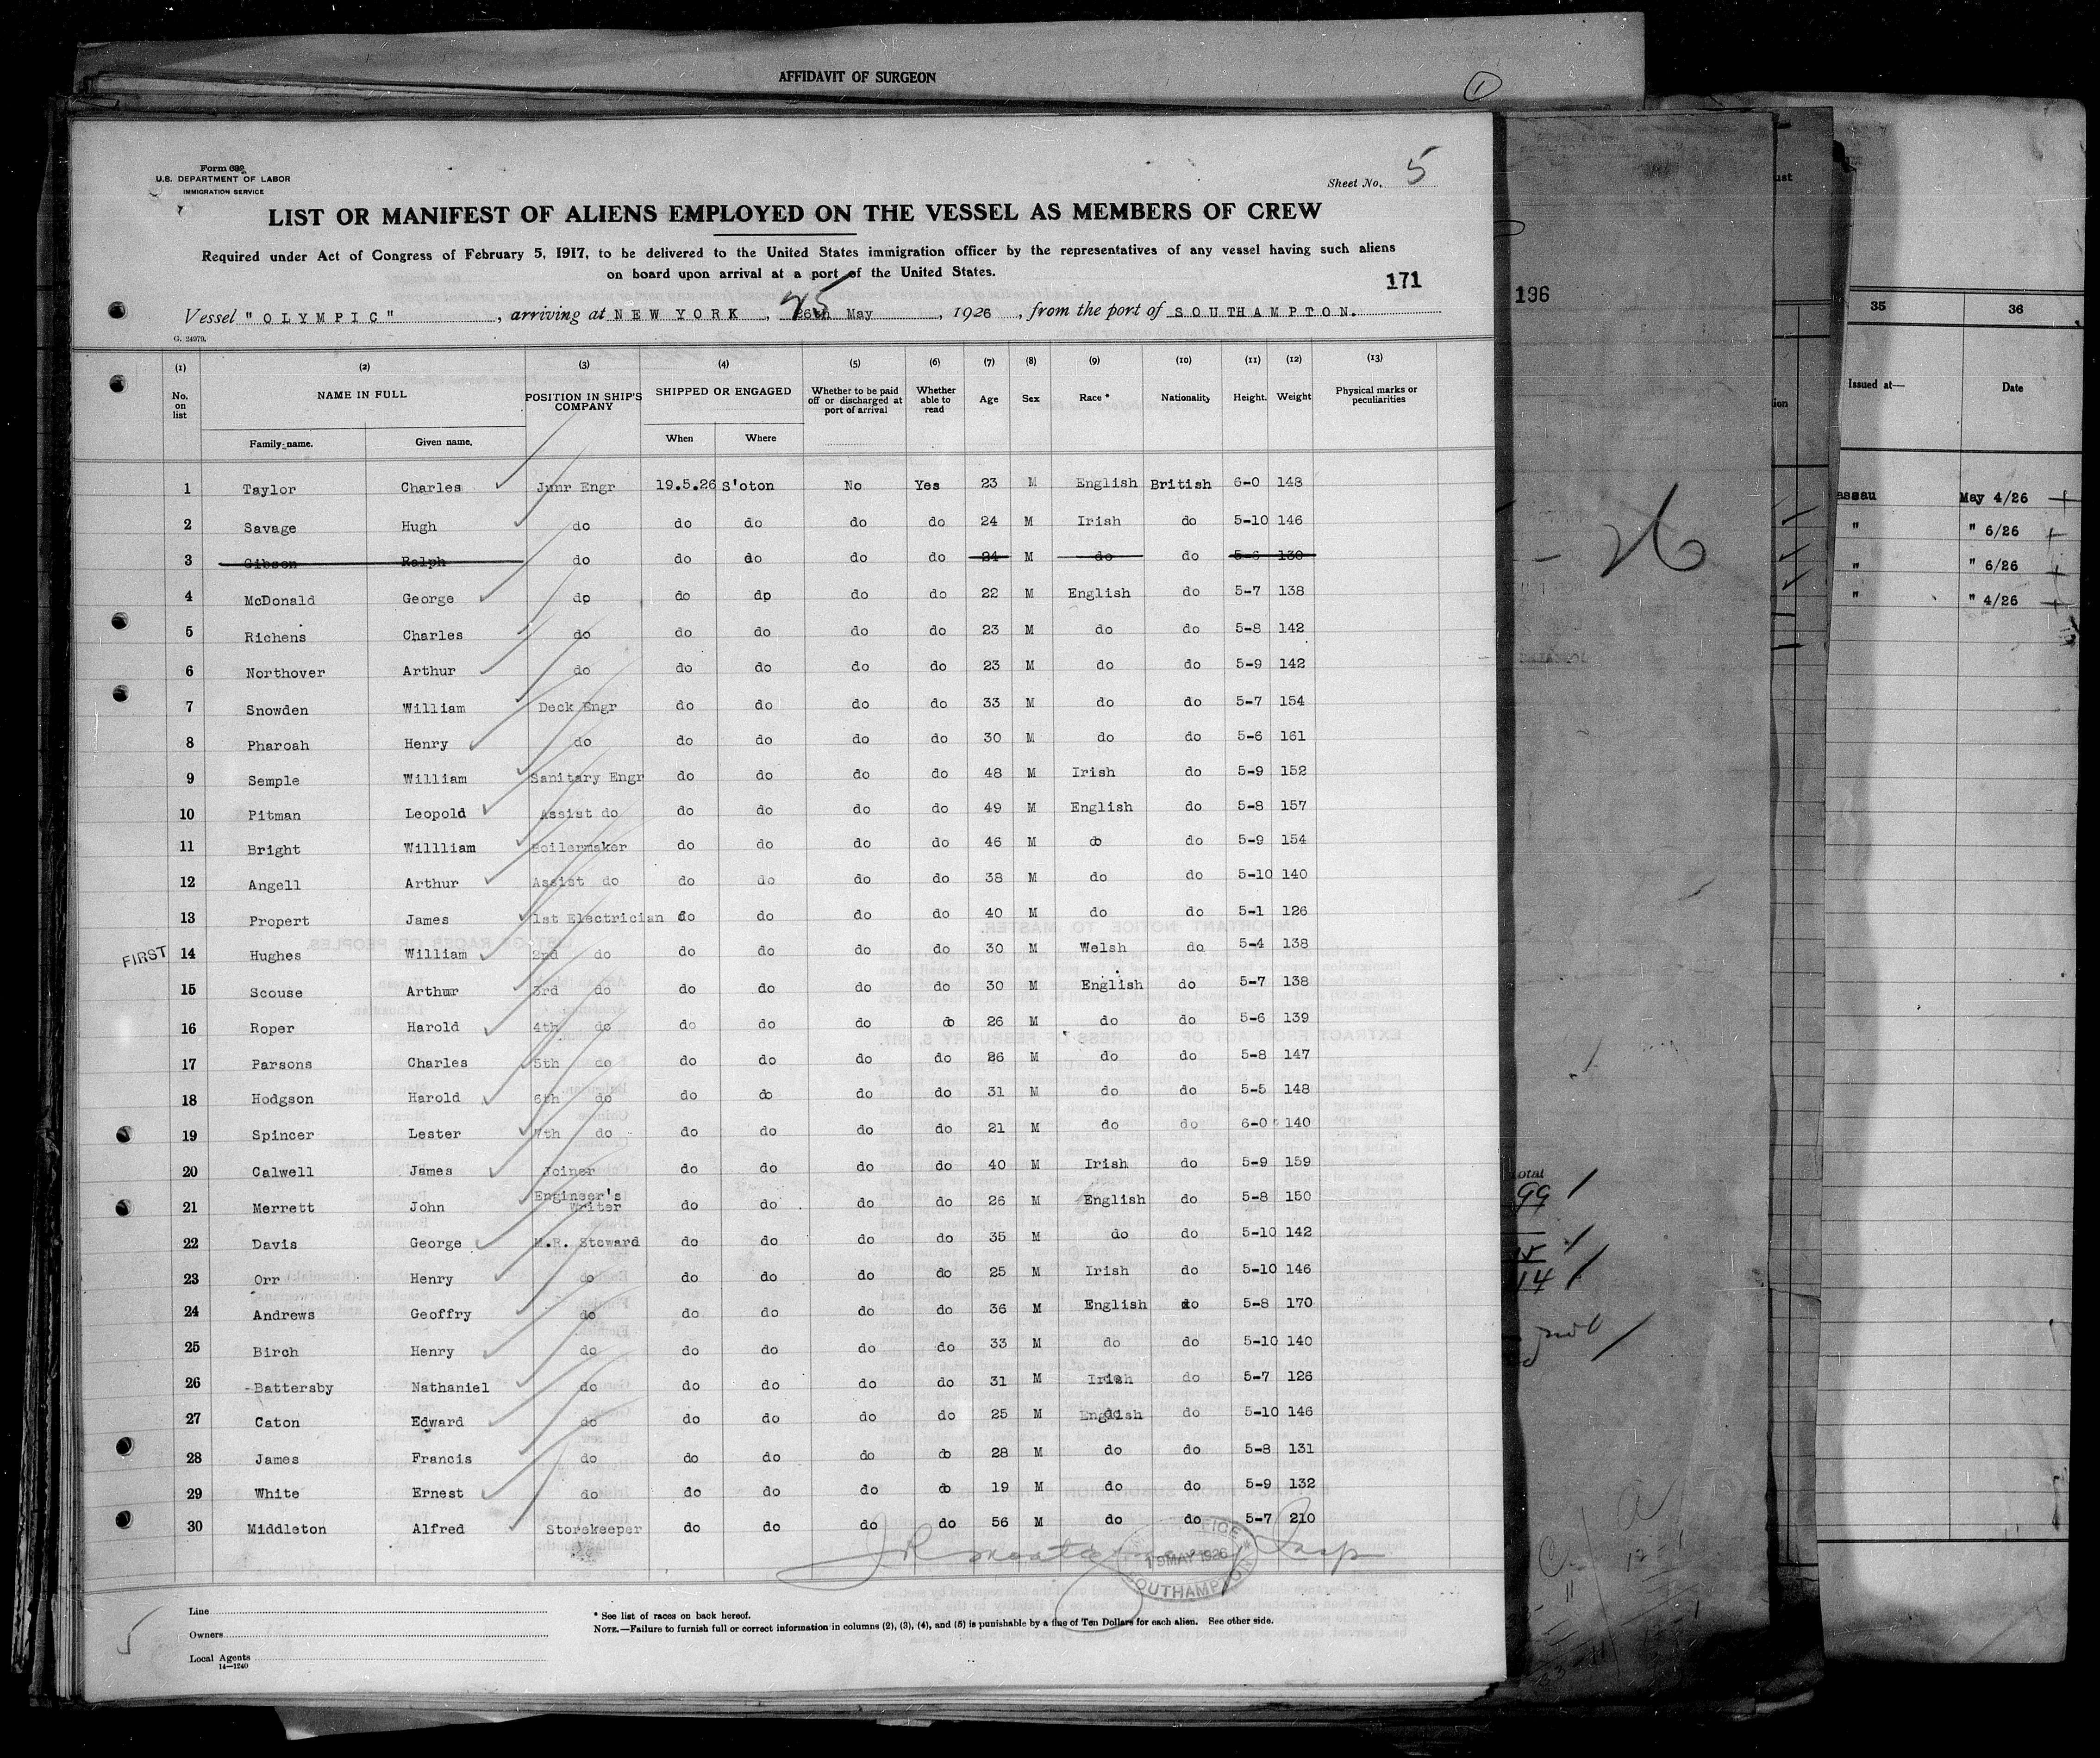 AFFIDAVIT OF SURGEON
1
Form 680
U.S. DEPARTMENT OF LABOR
IMMIGRATION SERVICE
Sheet No. 5
LIST OR MANIFEST OF ALIENS EMPLOYED ON THE VESSEL AS MEMBERS OF CREW
Required under Act of Congress of February 5, 1917, to be delivered to the United States immigration officer by the representatives of any vessel having such aliens
on board upon arrival at a port of the United States.
171
Vessel "OLYMPIC", arriving at NEW YORK, 26th May 25, 1926, from the port of SOUTHAMPTON.
G. 24979.
(1) (2) (3) (4) (5) (6) (7) (8) (9) (10) (11) (12) (13)
No. on list NAME IN FULL POSITION IN SHIP'S COMPANY SHIPPED OR ENGAGED Whether to be paid off or discharged at port of arrival Whether able to read Age Sex Race * Nationality Height. Weight Physical marks or peculiarities
Family name. Given name. When Where
1 Taylor Charles Junr Engr 19.5.26 S'oton No Yes 23 M English British 6-0 148
2 Savage Hugh do do do do do 24 M Irish do 5-10 146
3 Gibson Ralph do do do do do 24 M do do 5-6 130
4 McDonald George do do dp do do 22 M English do 5-7 138
5 Richens Charles do do do do do 23 M do do 5-8 142
6 Northover Arthur do do do do do 23 M do do 5-9 142
7 Snowden William Deck Engr do do do do 33 M do do 5-7 154
8 Pharoah Henry do do do do do 30 M do do 5-6 161
9 Semple William Sanitary Engr do do do do 48 M Irish do 5-9 152
10 Pitman Leopold Assist do do do do do 49 M English do 5-8 157
11 Bright Willliam Boilermaker do do do do 46 M do do 5-9 154
12 Angell Arthur Assist do do do do do 38 M do do 5-10 140
13 Propert James 1st Electrician do do do do 40 M do do 5-1 126
FIRST 14 Hughes William 2nd do do do do do 30 M Welsh do 5-4 138
15 Scouse Arthur 3rd do do do do do 30 M English do 5-7 138
16 Roper Harold 4th do do do do do 26 M do do 5-6 139
17 Parsons Charles 5th do do do do do 26 M do do 5-8 147
18 Hodgson Harold 6th do do do do do 31 M do do 5-5 148
19 Spincer Lester 7th do do do do do 21 M do do 6-0 140
20 Calwell James Joiner do do do do 40 M Irish do 5-9 159
21 Merrett John Engineer's Writer do do do do 26 M English do 5-8 150
22 Davis George M.R. Steward do do do do 35 M do do 5-10 142
23 Orr Henry do do do do do 25 M Irish do 5-10 146
24 Andrews Geoffry do do do do do 36 M English do 5-8 170
25 Birch Henry do do do do do 33 M do do 5-10 140
26 Battersby Nathaniel do do do do do 31 M Irish do 5-7 126
27 Caton Edward do do do do do 25 M English do 5-10 146
28 James Francis do do do do do 28 M do do 5-8 131
29 White Ernest do do do do do 19 M do do 5-9 132
30 Middleton Alfred Storekeeper do do do do 56 M do do 5-7 210
19 MAY 1926
SOUTHAMPTON
Line
Owners
Local Agents
14—1240
* See list of races on back hereof.
NOTE.—Failure to furnish full or correct information in columns (2), (3), (4), and (5) is punishable by a fine of Ten Dollars for each alien. See other side.
196
26
99
14
35 36
Issued at— Date
May 4/26
" " 6/26
" " 6/26
" " 4/26